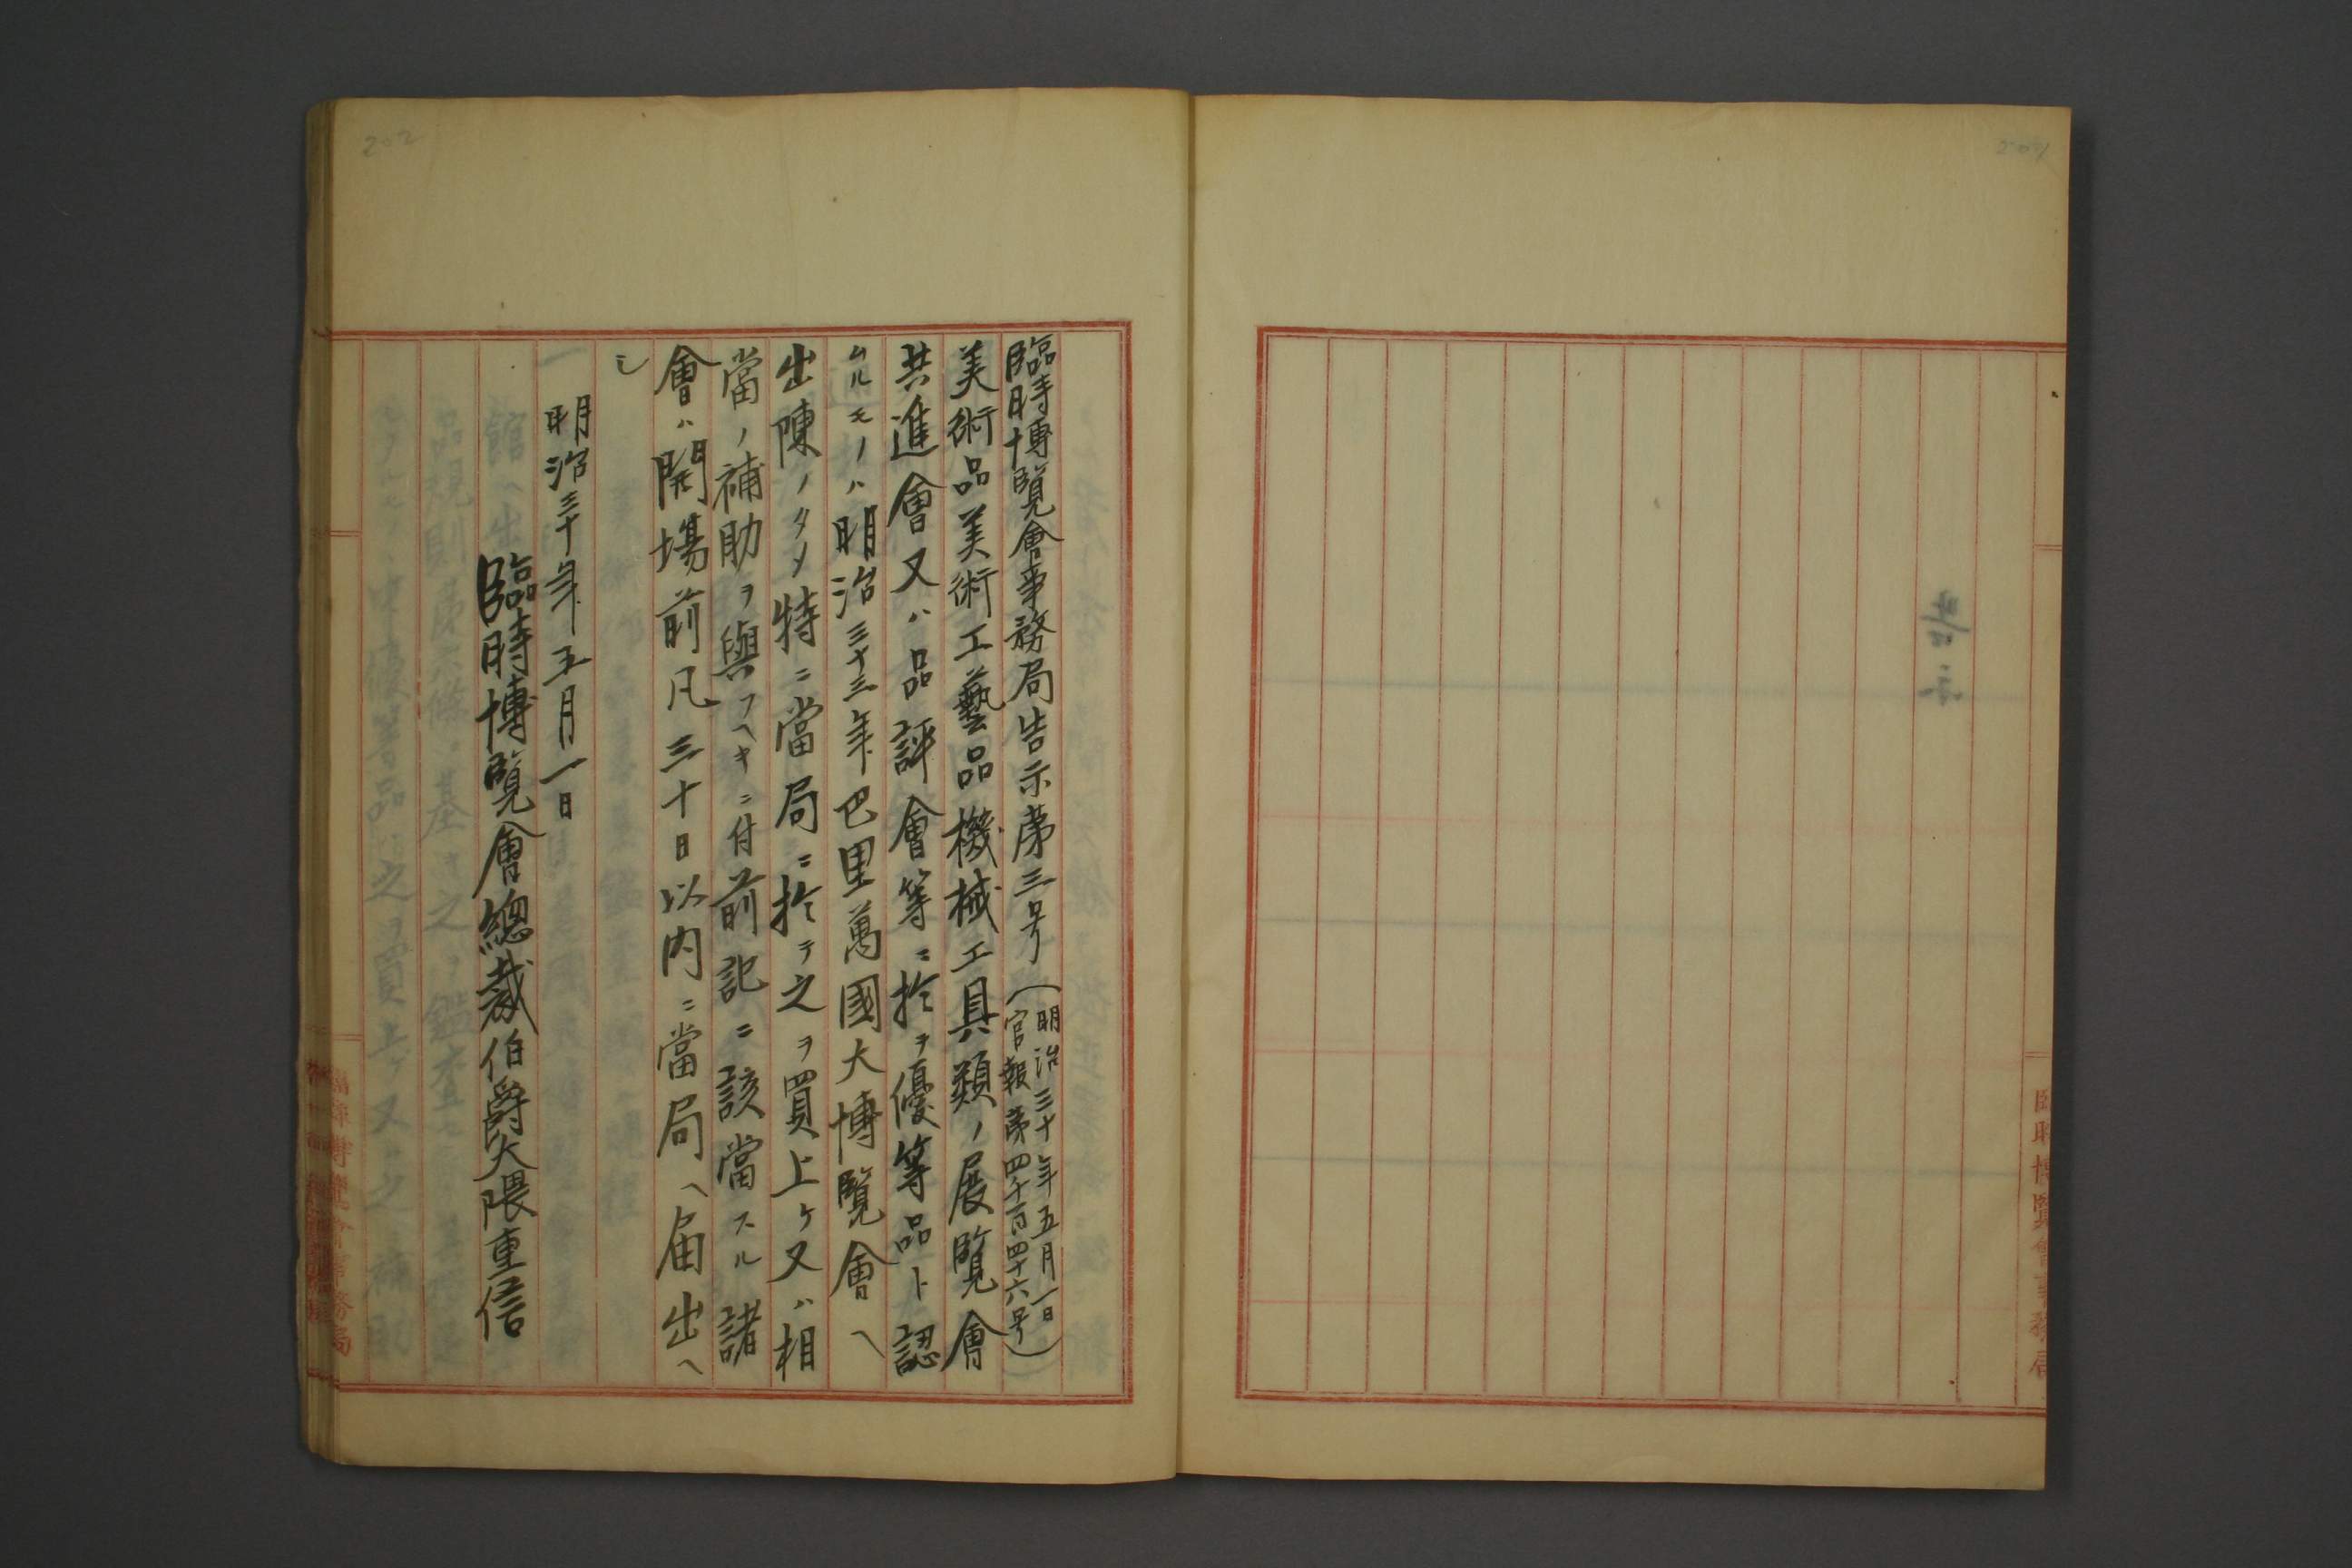 臨時博覧會事務局告示第三号(明治三十年五月一日
官報第四千百四十六号)
美術品美術工藝品機械工具類ノ展覧會
共進會又ハ品評會等ニ於テ優等品ト認
ムルモノハ明治三十三年巴里萬國大博覧會ヘ
出陳ノタメ特ニ當局ニ於テ之ヲ買上ケ又ハ相
當ノ補助ヲ與フヘキニ付前記ニ該當スル諸
會ハ開場前凡三十日以内ニ當局ヘ届出ヘ
シ
明治三十年五月一日
臨時博覧會總裁伯爵大隈重信
202
臨時博覽會事務局